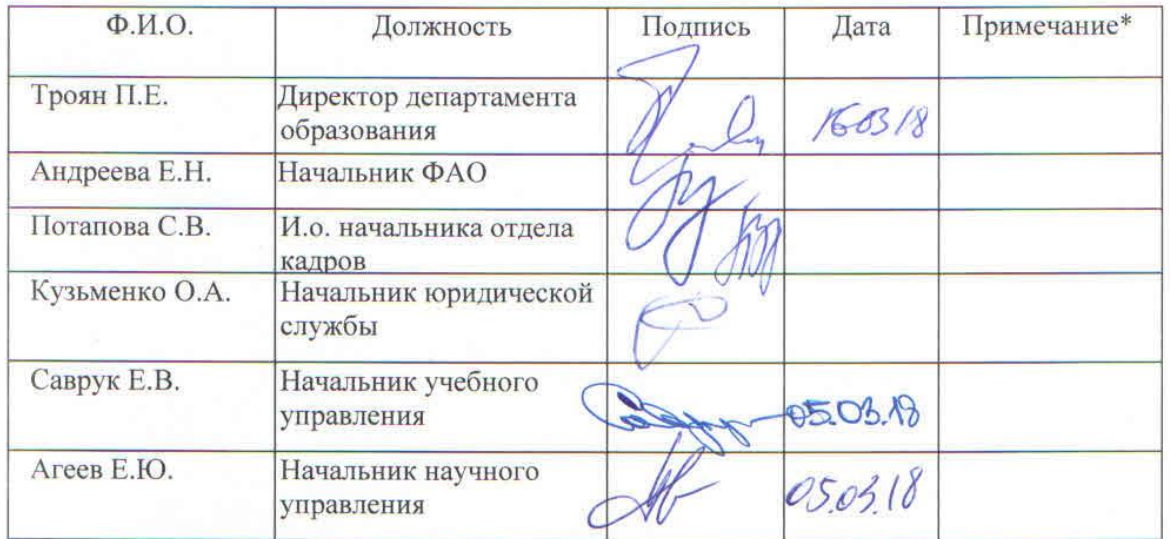 Ф.И.О. Должность Подпись Дата Примечание*
Троян П.Е. Директор департамента
образования 16.03.18
Андреева Е.Н. Начальник ФАО
Потапова С.В. И.о. начальника отдела
кадров
Кузьменко О.А. Начальник юридической
службы
Саврук Е.В. Начальник учебного
управления 05.03.18
Агеев Е.Ю. Начальник научного
управления 05.03.18